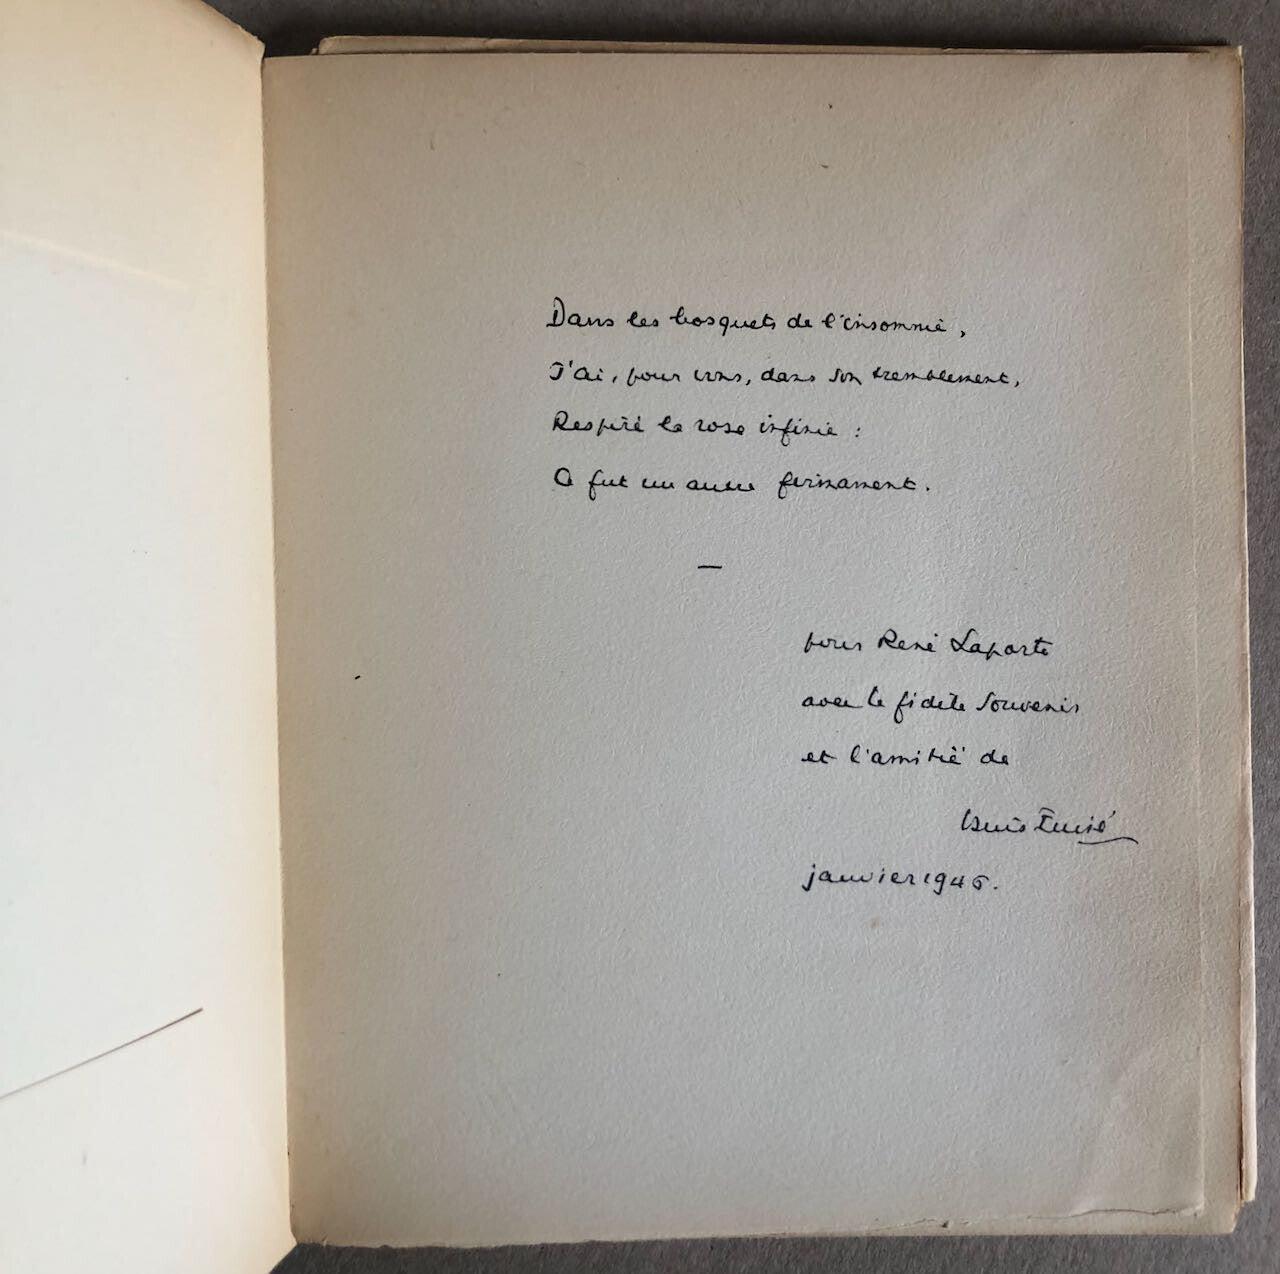 Dans les bosquets de l'insomnie,
J'ai, pour vous, dans son tremblement,
Respiré la rose infinie :
Ce fut un autre firmament.
—
pour René Laporte
avec le fidèle souvenir
et l'amitié de
Louis Émié
janvier 1946.